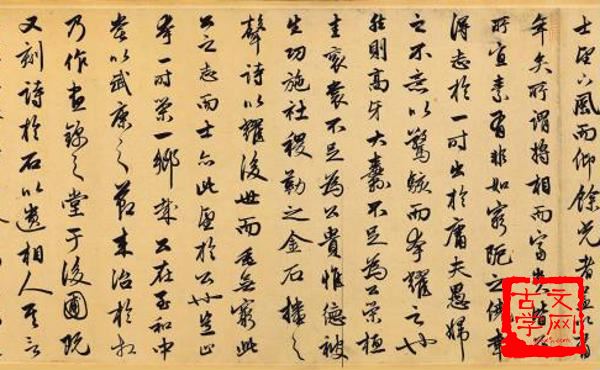 士望下風而仰餘光者蓋以有
年矣所謂將相而富貴皆公
所宜素有非如窮阨之僥幸
得志於一時出於庸夫愚婦
之不意以驚駭而夸耀之也
然則高牙大纛不足為公榮桓
圭袞裳不足為公貴惟德被
生功施社稷勒之金石播之
聲詩以耀後世而垂無窮此
公之志而士亦此望於公也豈止
夸一時榮一鄉哉公在至和中
嘗以武康之節來治於相
乃作晝錦之堂于後圃既
又刻詩於石以遺相人其言
古文
学网